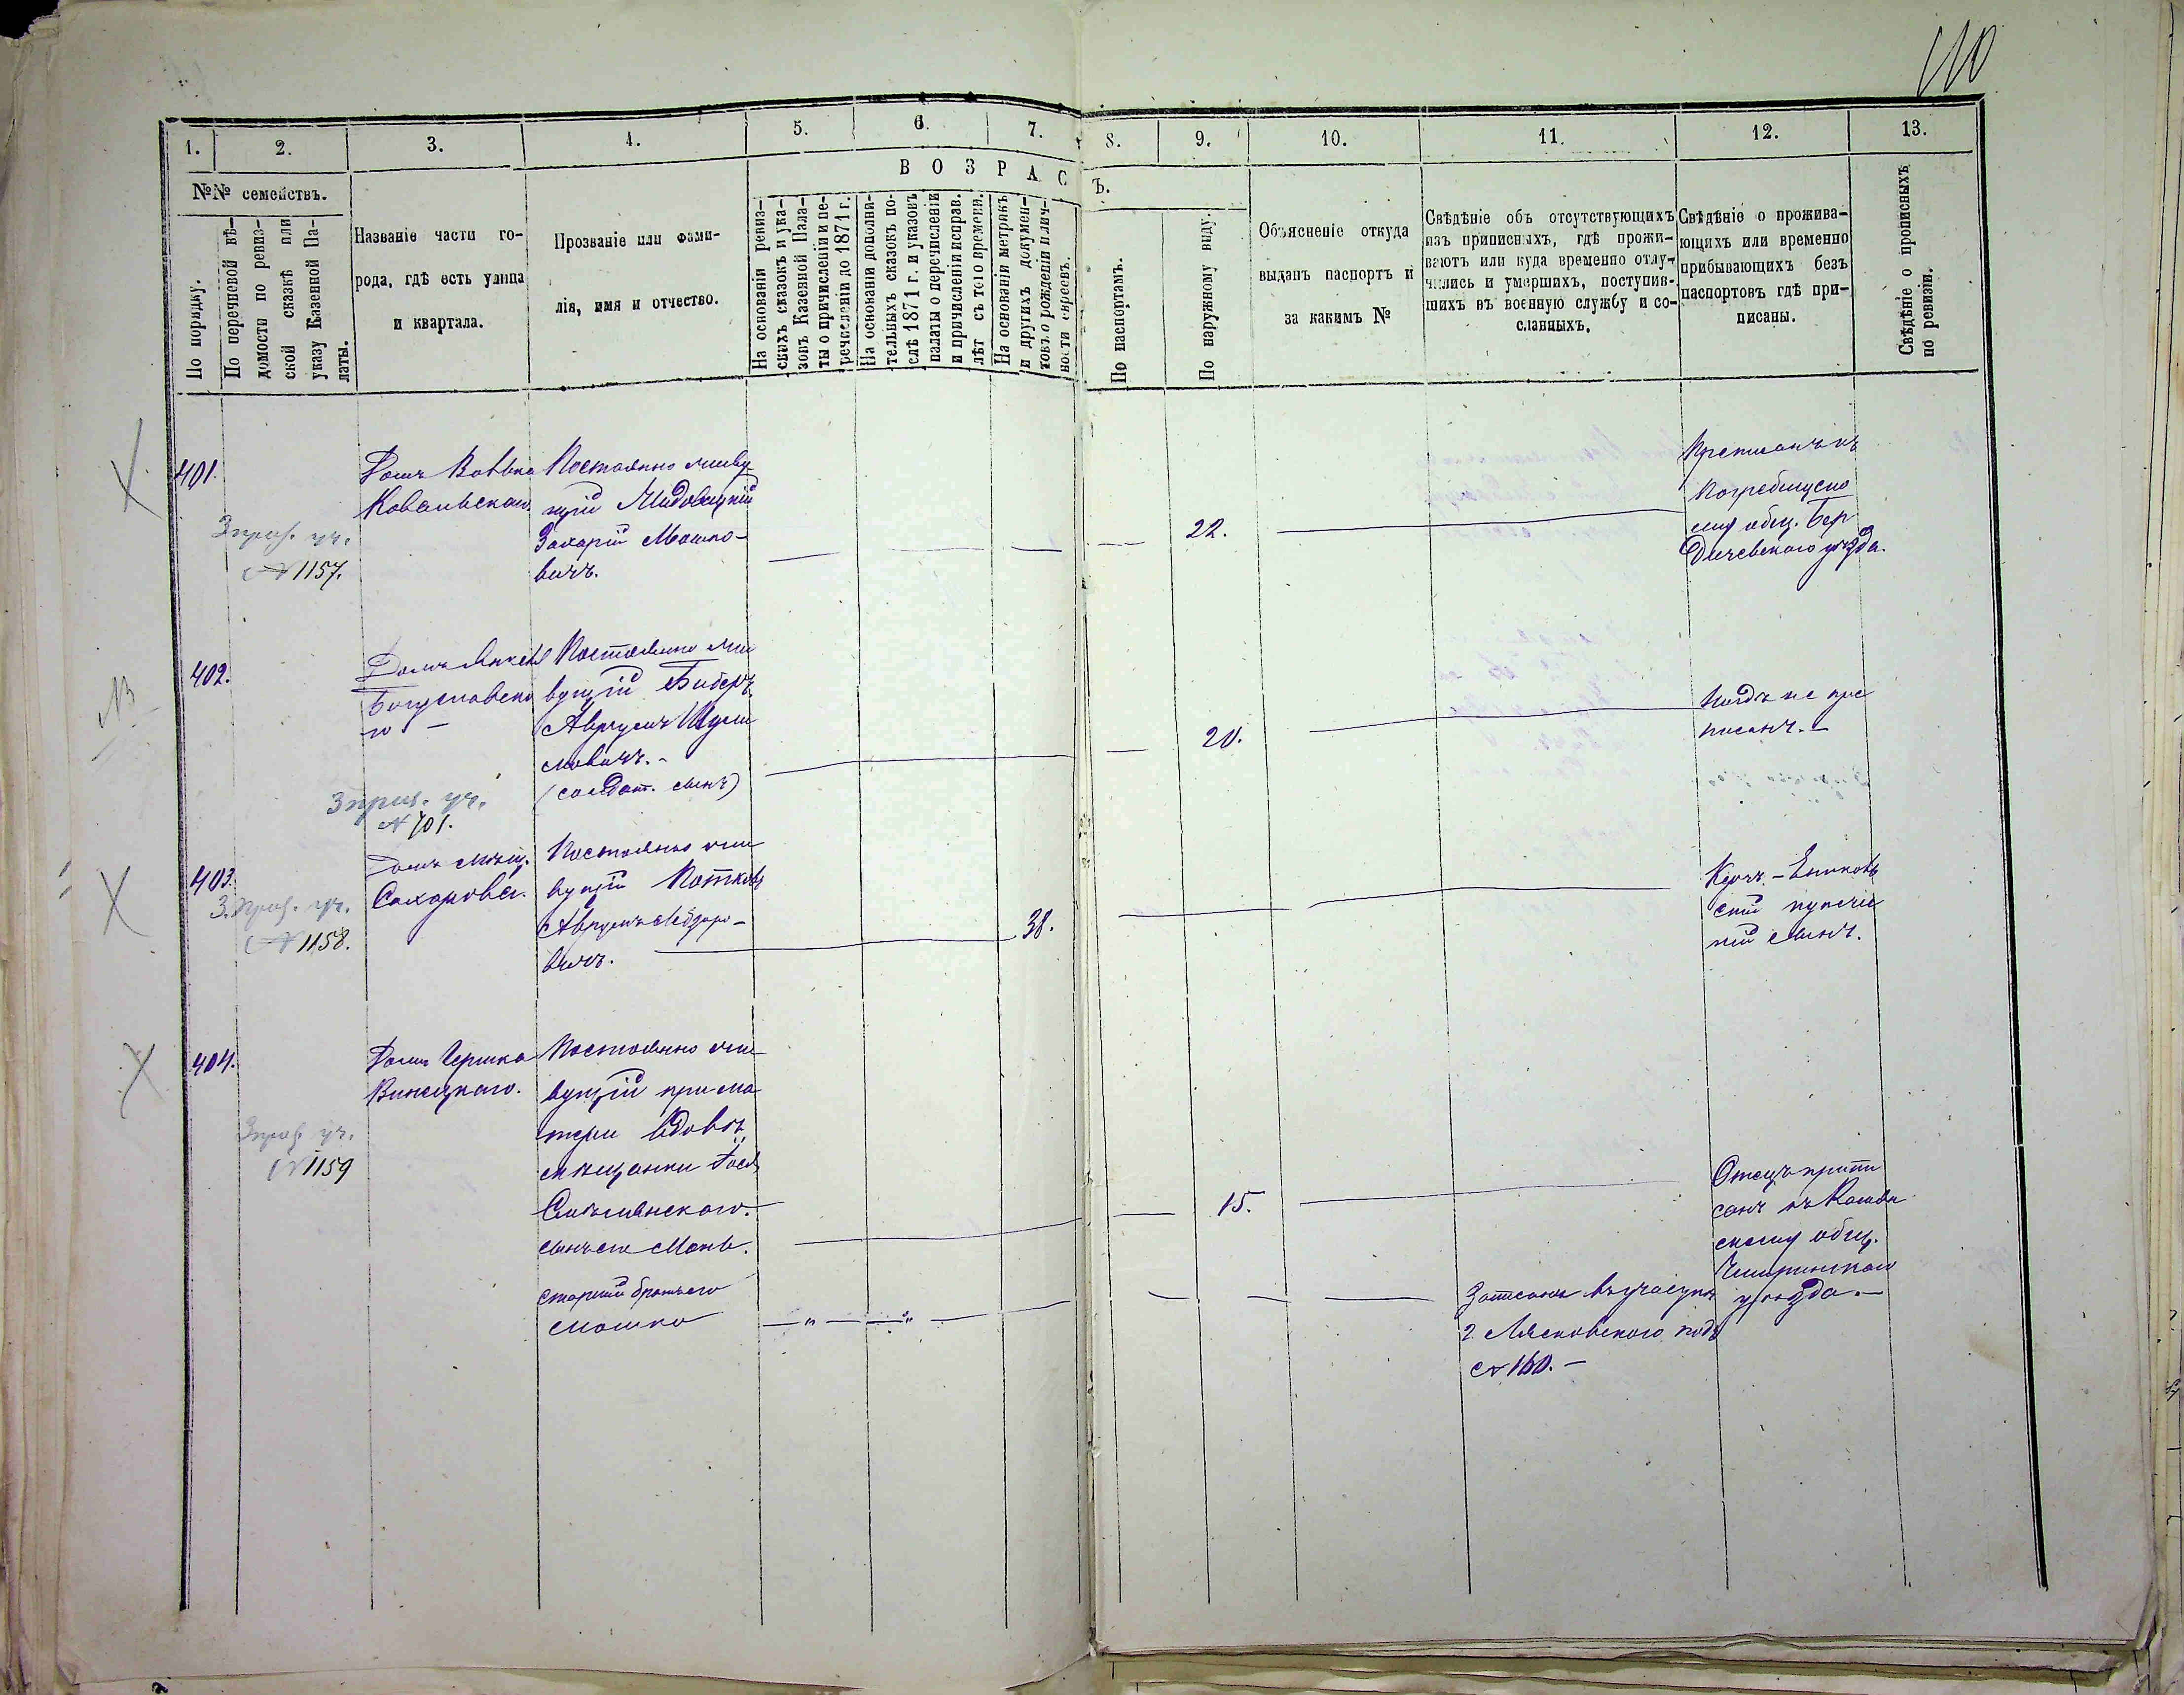 110
1. 2. 3. 4. 5. 6. 7. 8. 9. 10. 11. 12. 13.
№№ семействъ.
По порядку.
По перечневой вѣ-
домости по ревиз-
ской сказкѣ или
указу Казенной Па-
латы.
Названіе части го-
рода, гдѣ есть улица
и квартала.
Прозваніе или фами-
лія, имя и отчество.
ВОЗРАСТЪ.
На основаніи ревиз-
скихъ сказокъ и ука-
зовъ Казенной Пала-
ты о причисленіи и пе-
речисленіи до 1871 г.
На основаніи дополни-
тельныхъ сказокъ по-
слѣ 1871 г. и указовъ
палаты о перечисленіи
и причисленіи исправ.
лѣт съ того времени.
На основаніи метрикъ
и другихъ докумен-
товъ о рожденіи и лич-
ности евреевъ.
По паспортамъ.
По наружному виду.
Объясненіе откуда
выданъ паспортъ и
за какимъ №
Свѣдѣніе объ отсутствующихъ
изъ приписныхъ, гдѣ прожи-
ваютъ или куда временно отлу-
чились и умершихъ, поступив-
шихъ въ военную службу и со-
сланныхъ.
Свѣдѣніе о прожива-
ющихъ или временно
прибывающихъ безъ
паспортовъ гдѣ при-
писаны.
Свѣдѣніе о прописныхъ
по ревизіи.
401.
3 приз. уч.
№ 1157.
Домъ Вовька
Ковальскаго
Постоянно живу
щій
Захарій Мошко-
вичъ.
22.
Погребищско
му общ. Бер
дичевского уѣзда.
402.
3 приз. уч.
№ 701.
Домъ
Богуславска
го –
Постоянно жи
вущій Биберъ
Аврумъ Шули
мовичъ. –
(солдат. сынъ)
20.
Нигдѣ не при
писанъ. –
403.
3. приз. уч.
№ 1158.
Домъ мѣщ.
Сахарова.
Постоянно жи
вущій
Аврумъ
вичъ.
38.
сынъ.
404.
3 приз. уч.
№ 1159
Домъ Гершка
Винецкаго.
Постоянно жи
вущій при ма
тери вдовѣ
мѣщанки
Смѣлянскаго.
сынъ ея Монь.
старшій братъ его
Мошко
15.
Записанъ въ участкѣ
2. Лясковского подъ
№ 160. –
Отецъ припи
санъ къ
скому общ.
Чигиринскаго
уѣзда. –